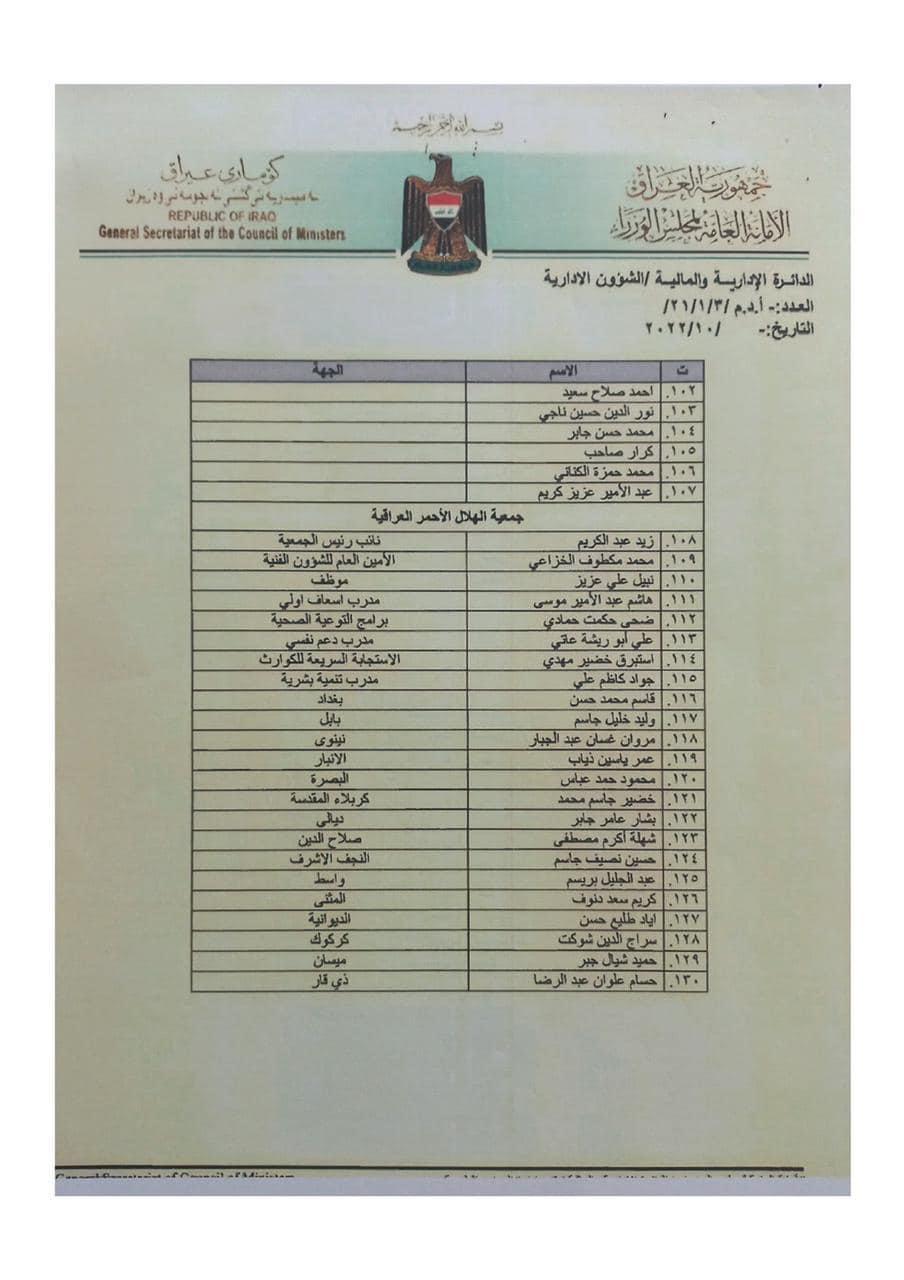 بسم الله الرحمن الرحيم
جمهورية العراق
الأمانة العامة لمجلس الوزراء
كۆماری عیراق
REPUBLIC OF IRAQ
General Secretariat of the Council of Ministers
الدائرة الإدارية والمالية /الشؤون الادارية
العدد:- أ.د.م /٢١/١/٣/
التاريخ:- /٢٠٢٢/١٠
ت الاسم الجهة
١٠٢. احمد صلاح سعيد
١٠٣. نور الدين حسين ناجي
١٠٤. محمد حسن جابر
١٠٥. كرار صاحب
١٠٦. محمد حمزة الكناني
١٠٧. عبد الأمير عزيز كريم
جمعية الهلال الأحمر العراقية
١٠٨. زيد عبد الكريم نائب رئيس الجمعية
١٠٩. محمد مكطوف الخزاعي الأمين العام للشؤون الفنية
١١٠. نبيل علي عزيز موظف
١١١. هاشم عبد الأمير موسى مدرب اسعاف اولي
١١٢. ضحى حكمت حمادي برامج التوعية الصحية
١١٣. علي أبو ريشة عاتي مدرب دعم نفسي
١١٤. استبرق خضير مهدي الاستجابة السريعة للكوارث
١١٥. جواد كاظم علي مدرب تنمية بشرية
١١٦. قاسم محمد حسن بغداد
١١٧. وليد خليل جاسم بابل
١١٨. مروان غسان عبد الجبار نينوى
١١٩. عمر ياسين ذياب الانبار
١٢٠. محمود حمد عباس البصرة
١٢١. خضير جاسم محمد كربلاء المقدسة
١٢٢. بشار عامر جابر ديالى
١٢٣. شهلة أكرم مصطفى صلاح الدين
١٢٤. حسين نصيف جاسم النجف الاشرف
١٢٥. عبد الجليل بريسم واسط
١٢٦. كريم سعد دنوف المثنى
١٢٧. اياد طليع حسن الديوانية
١٢٨. سراج الدين شوكت كركوك
١٢٩. حميد شيال جبر ميسان
١٣٠. حسام علوان عبد الرضا ذي قار
General Secretariat of Council of Ministers